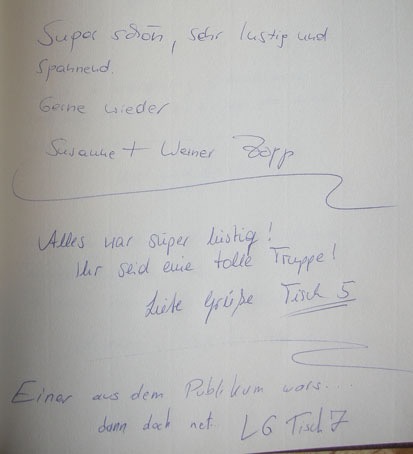 Super schön, sehr lustig und
spannend.
Gerne wieder
Susanne + Werner Zopp
Alles war super lustig!
Ihr seid eine tolle Truppe!
Liebe Grüße Tisch 5
Einer aus dem Publikum wars....
dann doch net. LG Tisch 7